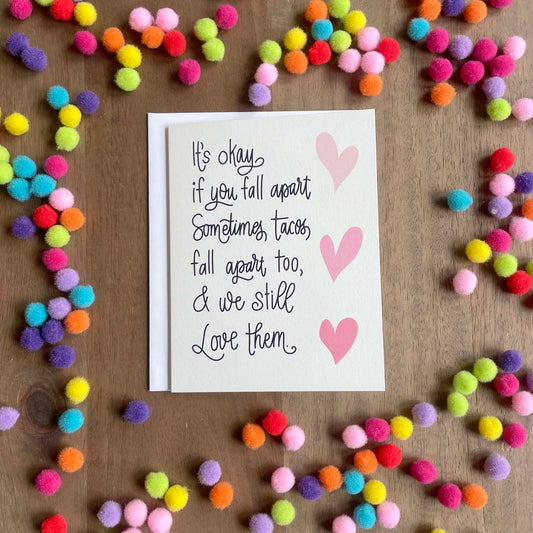 It's okay
if you fall apart
Sometimes tacos
fall apart too,
& we still
Love them.